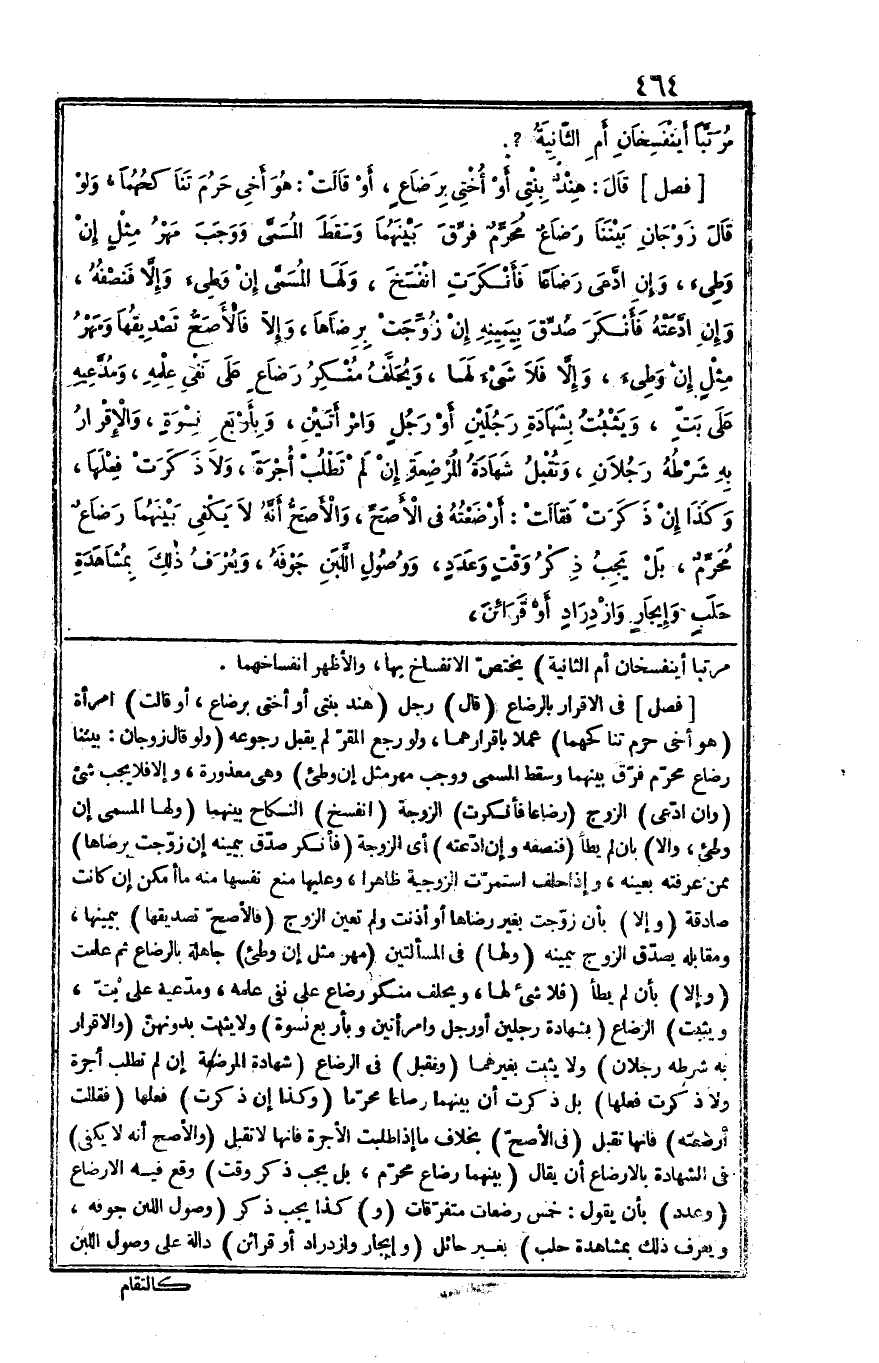 ٤٦٤
مُرَتَّبًا أَيَنْفَسِخَانِ أَمِ الثَّانِيَةُ ؟.
[ فصل ] قَالَ : هِنْدٌ بِنْتِي أَوْ أُخْتِي بِرَضَاعٍ ، أَوْ قَالَتْ : هُوَ أَخِي حَرُمَ تَنَاكُحُهُمَا ، وَلَوْ
قَالَ زَوْجَانِ بَيْنَنَا رَضَاعٌ مُحَرِّمٌ فُرِّقَ بَيْنَهُمَا وَسَقَطَ الْمُسَمَّى وَوَجَبَ مَهْرُ مِثْلٍ إِنْ
وَطِيءَ ، وَإِنِ ادَّعَى رَضَاعًا فَأَنْكَرَتِ انْفَسَخَ ، وَلَهَا الْمُسَمَّى إِنْ وَطِيءَ وَإِلَّا فَنِصْفُهُ ،
وَإِنِ ادَّعَتْهُ فَأَنْكَرَ صُدِّقَ بِيَمِينِهِ إِنْ زُوِّجَتْ بِرِضَاهَا ، وَإِلَّا فَالْأَصَحُّ تَصْدِيقُهَا وَمَهْرُ
مِثْلٍ إِنْ وَطِيءَ ، وَإِلَّا فَلَا شَيْءَ لَهَا ، وَيُحَلَّفُ مُنْكِرُ رَضَاعٍ عَلَى نَفْيِ عِلْمِهِ ، وَمُدَّعِيهِ
عَلَى بَتٍّ ، وَيَثْبُتُ بِشَهَادَةِ رَجُلَيْنِ أَوْ رَجُلٍ وَامْرَأَتَيْنِ ، وَبِأَرْبَعِ نِسْوَةٍ ، وَالْإِقْرَارُ
بِهِ شَرْطُهُ رَجُلَانِ ، وَتُقْبَلُ شَهَادَةُ الْمُرْضِعَةِ إِنْ لَمْ تَطْلُبْ أُجْرَةً ، وَلَا ذَكَرَتْ فِعْلَهَا ،
وَكَذَا إِنْ ذَكَرَتْ فَقَالَتْ : أَرْضَعْتُهُ فِي الْأَصَحِّ ، وَالْأَصَحُّ أَنَّهُ لَا يَكْفِي بَيْنَهُمَا رَضَاعٌ
مُحَرِّمٌ ، بَلْ يَجِبُ ذِكْرُ وَقْتٍ وَعَدَدٍ ، وَوُصُولِ اللَّبَنِ جَوْفَهُ ، وَيُعْرَفُ ذٰلِكَ بِمُشَاهَدَةِ
حَلَبٍ وَإِيجَارٍ وَازْدِرَادٍ أَوْ قَرَائِنَ ،
مرتبا أينفسخان أم الثانية ) يختص الانفساخ بها ، والأظهر انفساخهما .
[ فصل ] في الاقرار بالرضاع ( قال ) رجل ( هند بنتي أو أختي برضاع ، أو قالت ) امرأة
( هو أخي حرم تناكحهما ) عملا باقرارهما ، ولو رجع المقرّ لم يقبل رجوعه ( ولو قال زوجان : بيننا
رضاع محرّم فرّق بينهما وسقط المسمى ووجب مهر مثل إن وطئ ) وهي معذورة ، وإلا فلا يجب شئ
( وان ادّعى ) الزوج ( رضاعا فأنكرت ) الزوجة ( انفسخ ) النكاح بينهما ( ولها المسمى إن
وطئ ، والا ) بان لم يطأ ( فنصفه وإن ادّعته ) أى الزوجة ( فأنكر صدّق بيمينه إن زوّجت برضاها )
ممن عرفته بعينه ، وإذا حلف استمرّت الزوجية ظاهرا ، وعليها منع نفسها منه ما أمكن إن كانت
صادقة ( وإلا ) بأن زوّجت بغير رضاها أو أذنت ولم تعين الزوج ( فالأصحّ تصديقها ) بيمينها ،
ومقابله يصدّق الزوج بيمينه ( ولها ) في المسألتين ( مهر مثل إن وطئ ) جاهلة بالرضاع ثم علمت
( وإلا ) بأن لم يطأ ( فلا شئ لها ، ويحلف منكر رضاع على نفي علمه ، ومدّعيه على بتّ ،
ويثبت ) الرضاع ( بشهادة رجلين أو رجل وامرأتين وبأربع نسوة ) ولا يثبت بدونهنّ ( والاقرار
به شرطه رجلان ) ولا يثبت بغيرهما ( وتقبل ) في الرضاع ( شهادة المرضعة إن لم تطلب أجرة
ولا ذكرت فعلها ) بل ذكرت أن بينهما رضاعا محرّما ( وكذا إن ذكرت ) فعلها ( فقالت
أرضعته ) فانها تقبل ( في الأصحّ ) بخلاف ما إذا طلبت الأجرة فانها لا تقبل ( والأصح أنه لا يكفي )
في الشهادة بالارضاع أن يقال ( بينهما رضاع محرّم ، بل يجب ذكر وقت ) وقع فيه الارضاع
( وعدد ) بأن يقول : خمس رضعات متفرّقات ( و ) كذا يجب ذكر ( وصول اللبن جوفه ،
ويعرف ذلك بمشاهدة حلب ) بغير حائل ( وإيجار وازدراد أو قرائن ) دالة على وصول اللبن
كالتقام